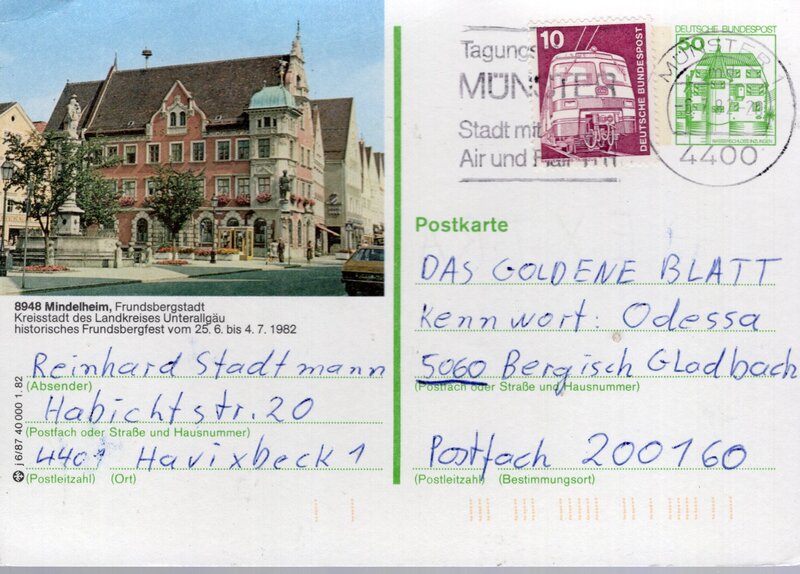 8948 Mindelheim, Frundsbergstadt
Kreisstadt des Landkreises Unterallgäu
historisches Frundsbergfest vom 25. 6. bis 4. 7. 1982
Reinhard Stadtmann
(Absender)
Habichtstr. 20
(Postfach oder Straße und Hausnummer)
4401 Havixbeck 1
(Postleitzahl) (Ort)
j 6/87 40 000 1. 82
Tagungs
MÜNSTER
Stadt mit
Air und Flair
10
DEUTSCHE BUNDESPOST
DEUTSCHE BUNDESPOST
50
WASSERSCHLOSS INZLINGEN
MÜNSTER
4400
Postkarte
DAS GOLDENE BLATT
Kennwort: Odessa
5060 Bergisch Gladbach
(Postfach oder Straße und Hausnummer)
Postfach 200160
(Postleitzahl) (Bestimmungsort)